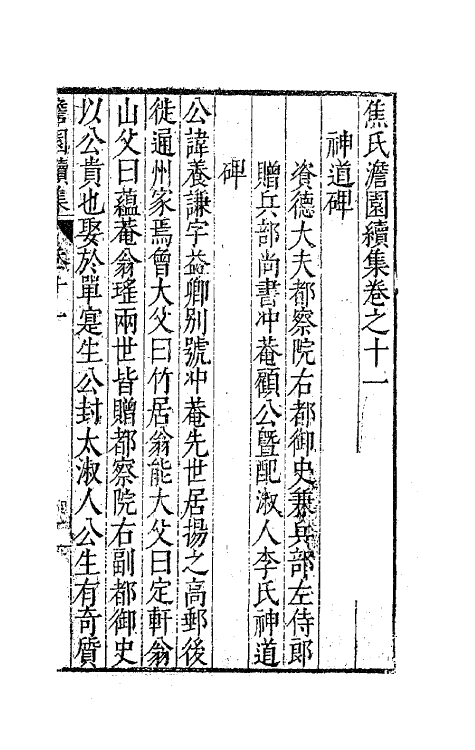 焦氏澹園續集卷之十一
神道碑
資德大夫都察院右都御史兼兵部左侍郎
贈兵部尚書冲菴顧公曁配淑人李氏神道
碑
公諱養謙字益卿別號冲菴先世居揚之高郵後
徙通州家焉曾大父曰竹居翁能大父曰定軒翁
山父曰蘊菴翁瑤兩世皆贈都察院右副都御史
以公貴也娶於單寔生公封太淑人公生有奇質
澹園續集 卷十一